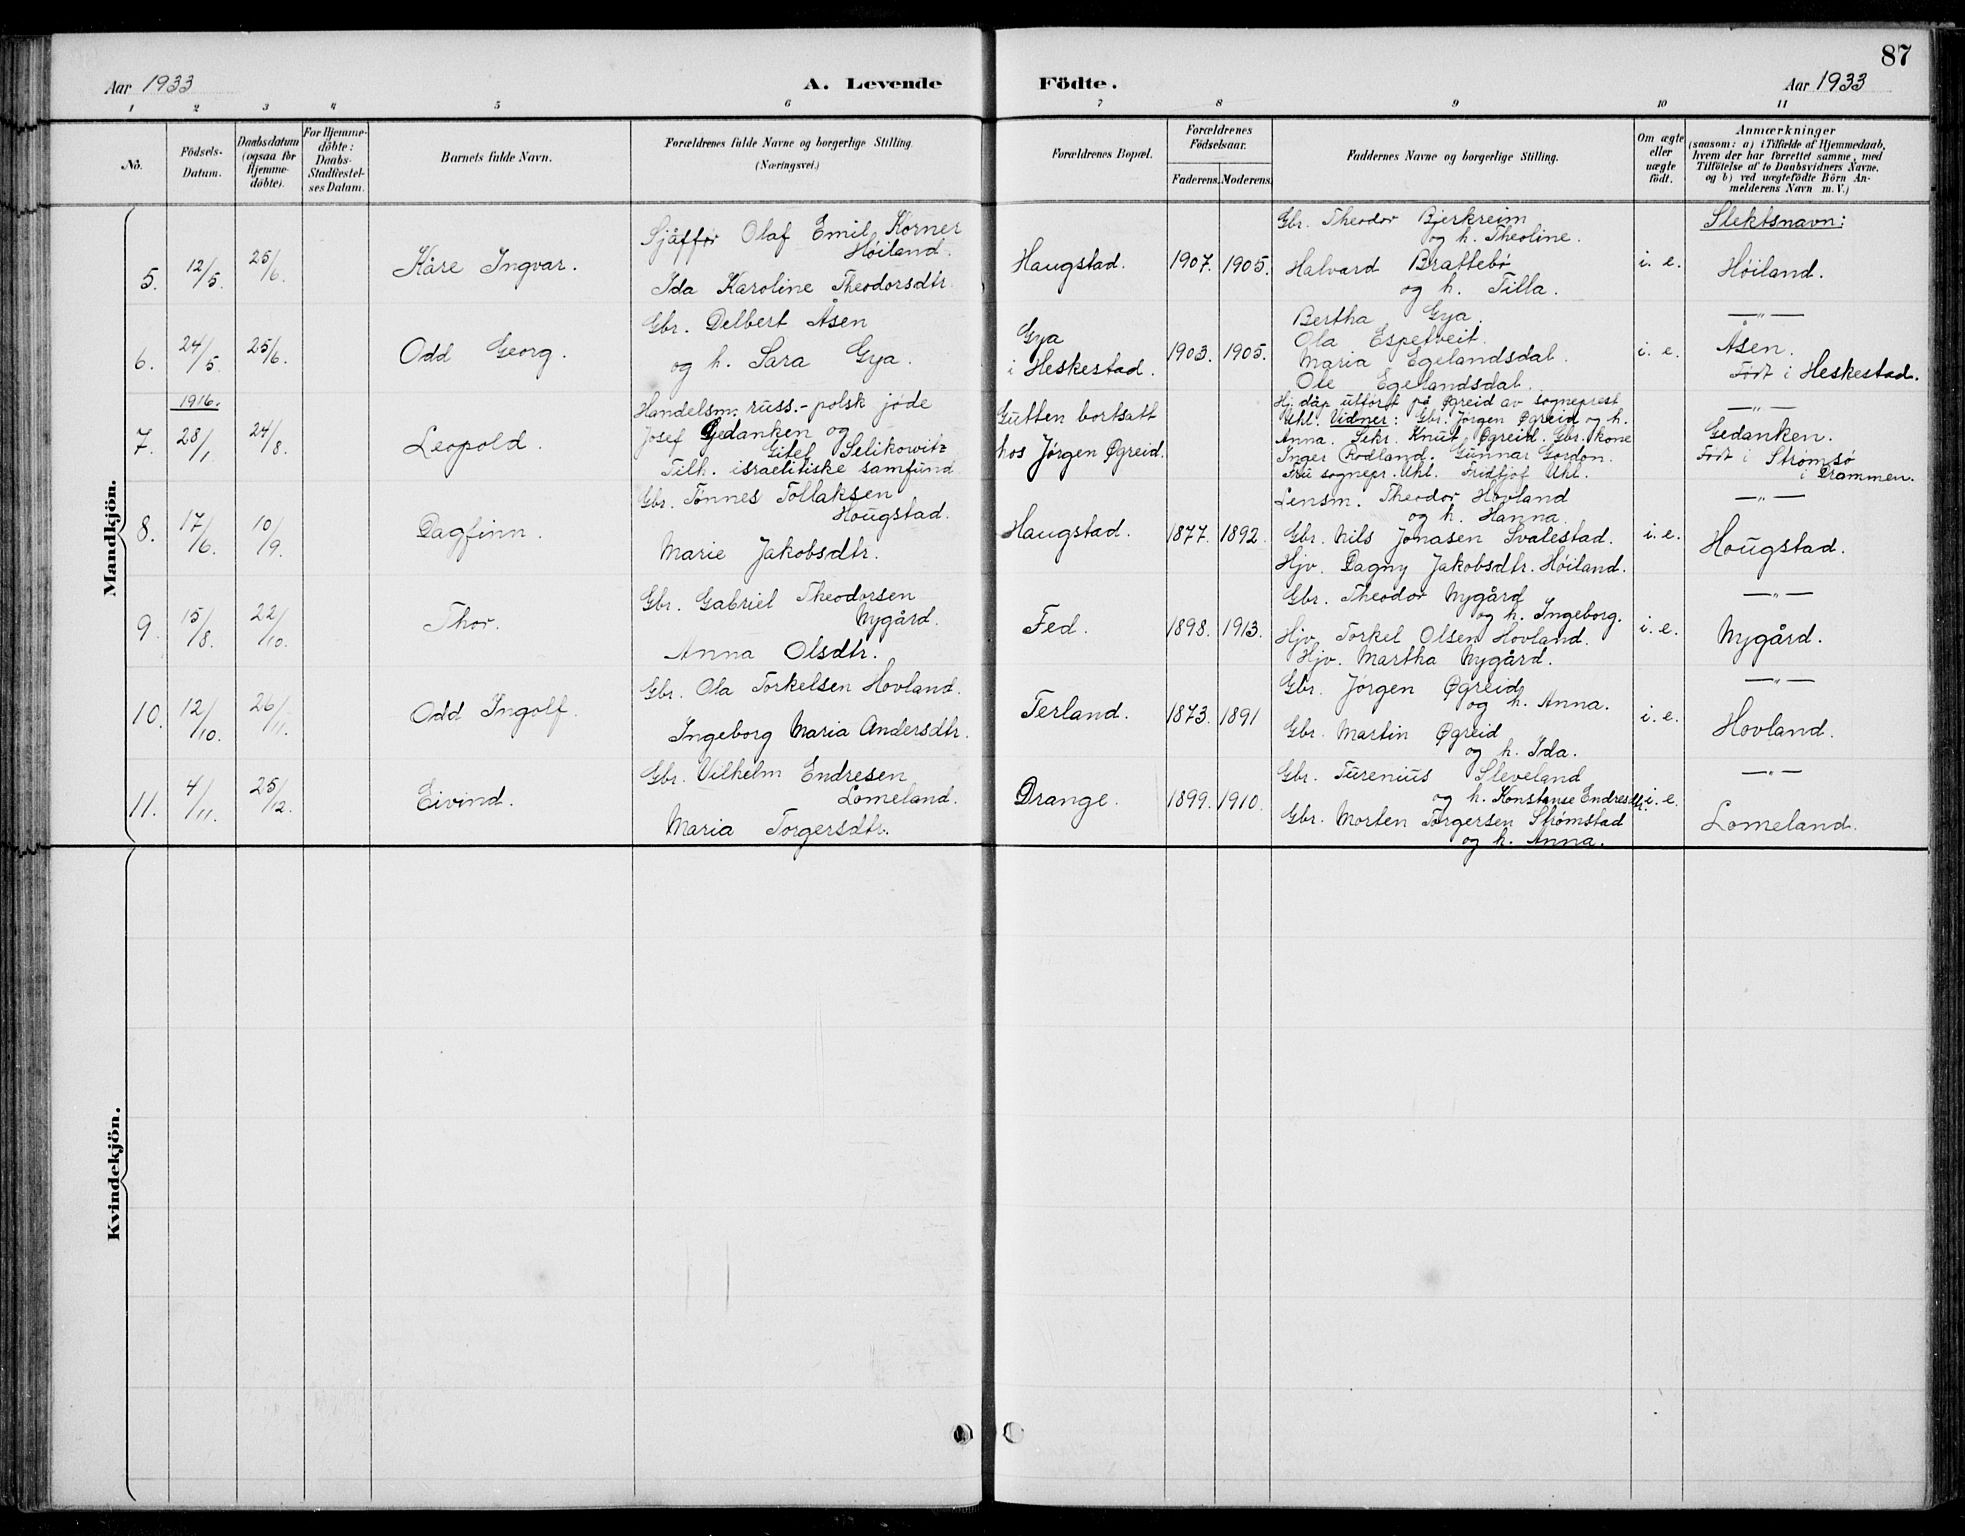 87
Aar 1933
A. Levende
Födte.
Aar 1933
1 2 3 4 5 6 7 8 9 10 11
No.
Födsels-
Datum.
Daabsdatum
(ogsaa for
Hjemme-
döbte).
For Hjemme-
döbte:
Daabs-
Stadfæstel-
ses Datum.
Barnets fulde Navn.
Forældrenes fulde Navne og borgerlige Stilling.
(Næringsvei.)
Forældrenes Bopæl.
Forældrenes
Födselsaar.
Faderens. Moderens.
Faddernes Navne og borgerlige Stilling.
Om ægte
eller
uægte
födt.
Anmærkninger
(saasom: a) i Tilfælde af Hjemmedaab,
hvem der har forrettet samme, med
Tilföielse af to Daabsvidners Navne,
og b) ved uægtefödte Börn An-
melderens Navn m. V.)
Mandkjön.
5.
12/5.
25/6.
Kåre Ingvar.
Sjåffør Olaf Emil Korner
Høiland.
Ida Karoline Theodorsdtr.
Haugstad.
1907. 1905.
Gbr. Theodor Bjerkreim
og h. Theoline.
Halvard Brattebø
og h. Tilla.
i. e.
Slektsnavn:
Høiland.
6.
24/5.
25/6.
Odd Georg.
Gbr. Delbert Åsen
og h. Sara Gya.
Gya
i Heskestad.
1903. 1905.
Bertha Gya.
Ola Espetveit.
Maria Egelandsdal.
Ole Egelandsdal.
i. e.
—"—
Åsen.
Født i Heskestad.
7.
1916.
28/1.
24/8.
Leopold.
Handelsm. russ.-polsk jøde
Josef Gedanken og
Gitel Selikowitz
Tilh. israelitiske samfund
Gutten bortsatt
hos Jørgen Øgreid.
Hj. dåp utført på Øgreid av sogneprest
Uhl. Vidner: Gbr. Jørgen Øgreid og h.
Anna. Sekr. Knut Øgreid. Gbr. kone
Inger Rodland. Gunnar Gordon.
Fru sognepr. Uhl. Fridtjof Uhl.
—"—
Gedanken.
Født i Strømsø
i Drammen.
8.
17/6.
10/9.
Dagfinn.
Gbr. Tønnes Tollaksen
Hougstad.
Marie Jakobsdtr.
Haugstad.
1877. 1892.
Lensm. Theodor Hovland
og h. Hanna.
Gbr. Nils Jonasen Svalestad.
Hjv. Dagny Jakobsdtr. Høiland.
i. e.
—"—
Hougstad.
9.
15/8.
22/10.
Thor.
Gbr. Gabriel Theodorsen
Nygård.
Anna Olsdtr.
Fed.
1898. 1913.
Gbr. Theodor Nygård
og h. Ingeborg.
Hjv. Torkel Olsen Hovland.
Hjv. Martha Nygård.
i. e.
—"—
Nygård.
10.
12/10.
26/11.
Odd Ingolf.
Gbr. Ola Torkelsen Hovland.
Ingeborg Maria Andersdtr.
Terland.
1873. 1891
Gbr. Jørgen Øgreid
og h. Anna.
Gbr. Martin Øgreid
og h. Ida.
i. e.
—"—
Hovland.
11.
4/11.
25/12.
Eivind.
Gbr. Vilhelm Endresen
Lomeland.
Maria Torgersdtr.
Drange.
1899. 1910.
Gbr. Turenius Sleveland
og h. Konstanse Endresdtr.
Gbr. Morten Torgersen Strømstad
og h. Anna.
i. e.
—"—
Lomeland.
Kvindekjön.